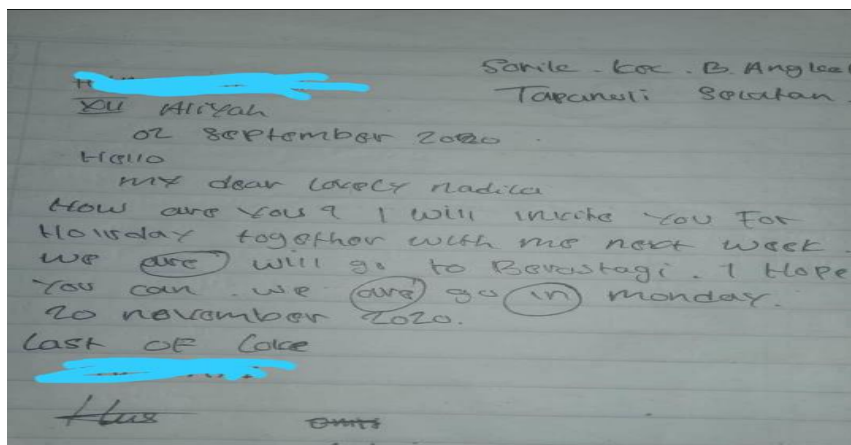 Sorile - kec. B. Angkol
Tapanuli Selatan.
XII Aliyah
02 September 2020.
Hello
my dear lovely nadila
How are you? I will invite you For
Holisday together with me next week.
we are will go to Berastagi. I Hope
you can. we are go in monday.
20 november 2020.
Last OF Love